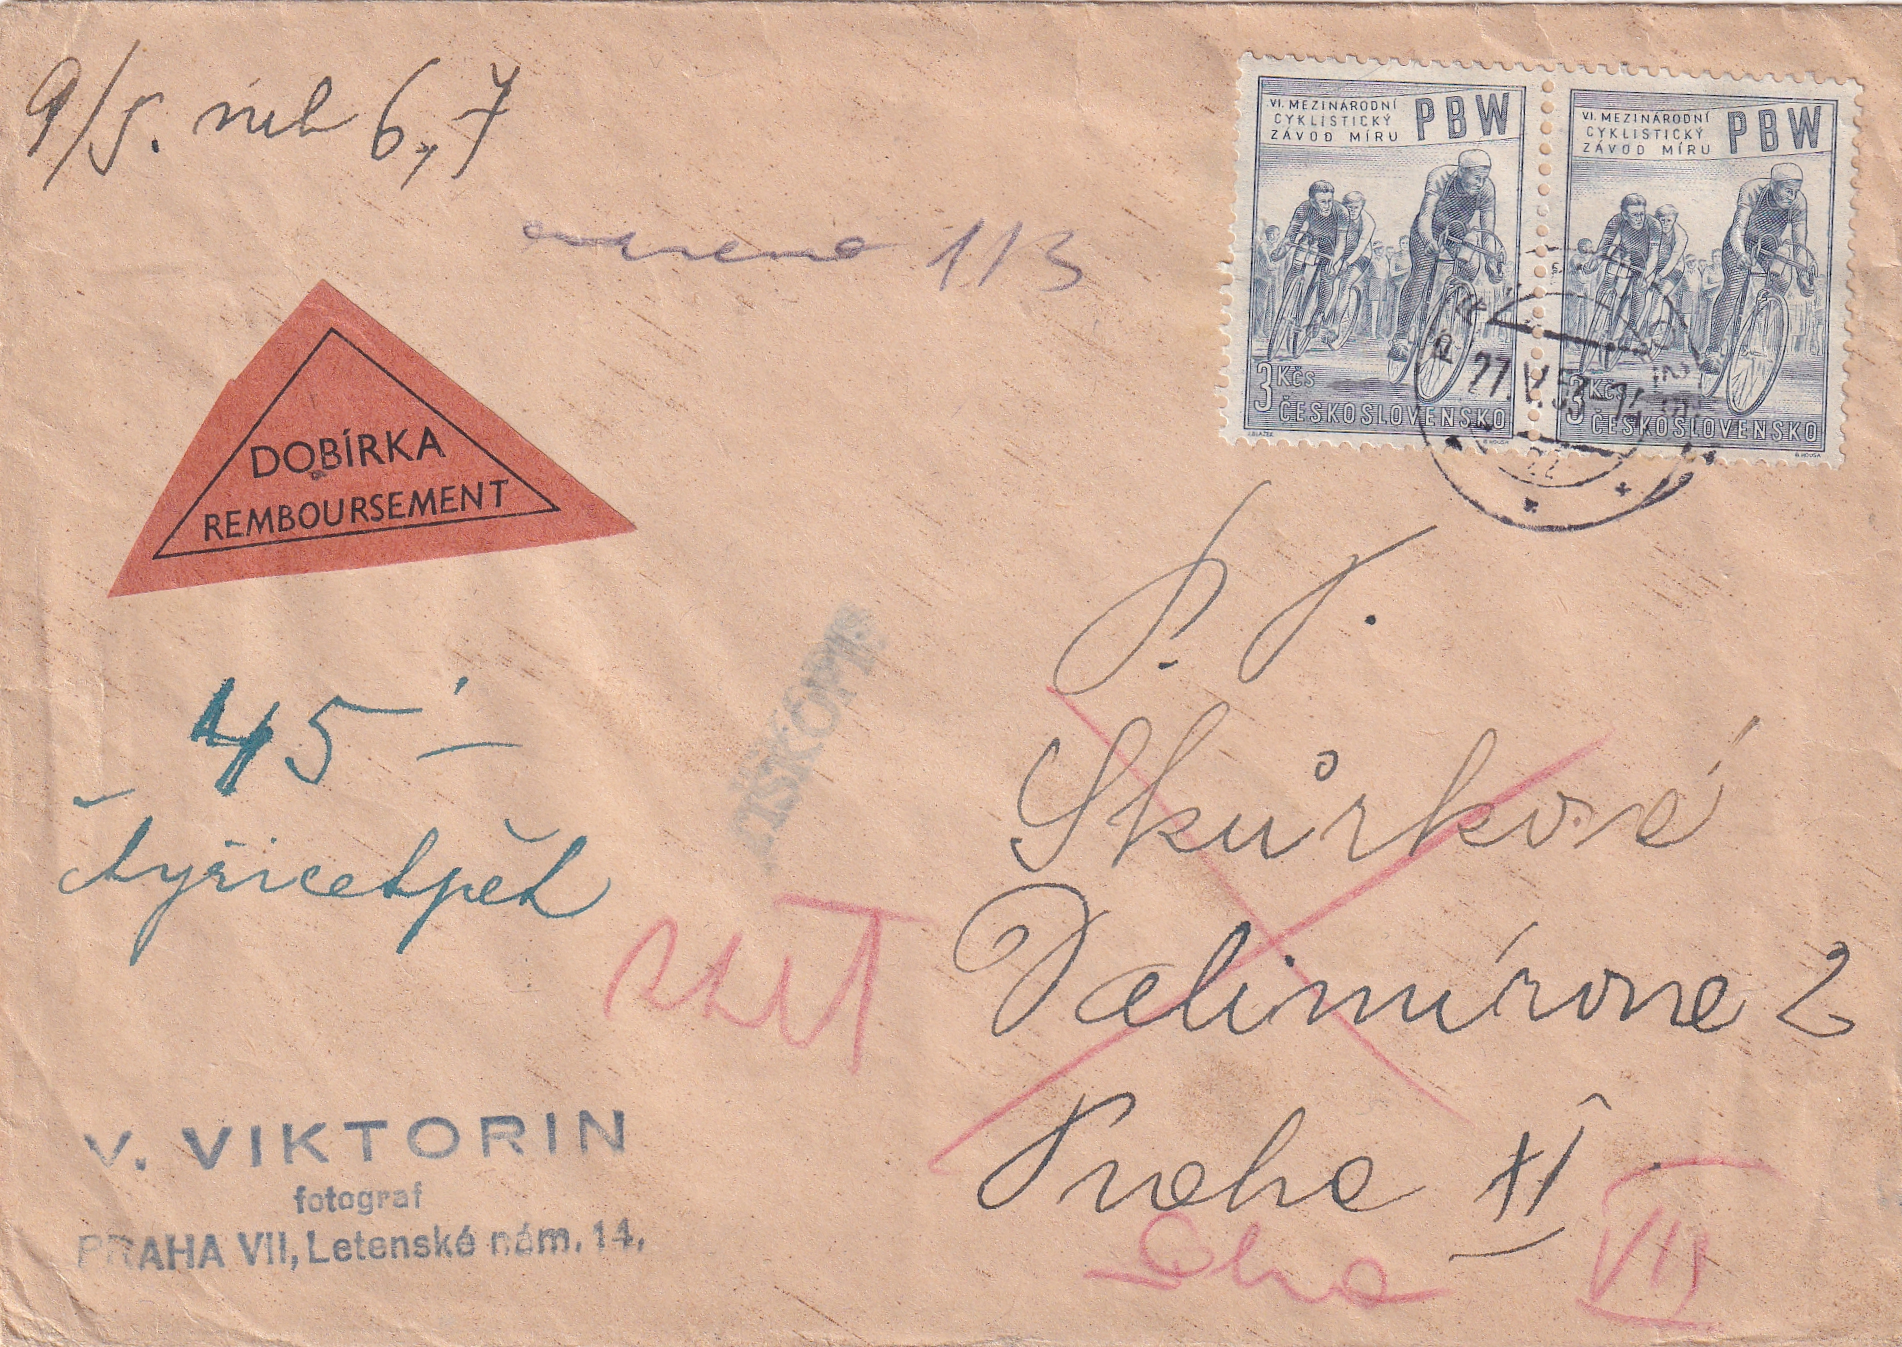 9/5. neb 6,7
113
VI. MEZINÁRODNÍ
CYKLISTICKÝ
ZÁVOD MÍRU
PBW
3 Kčs
ČESKOSLOVENSKO
VI. MEZINÁRODNÍ
CYKLISTICKÝ
ZÁVOD MÍRU
PBW
3 Kčs
ČESKOSLOVENSKO
27.V.53-14
DOBÍRKA
REMBOURSEMENT
P. T.
45 –
Škůrková
čtyřicetpět
Dalimírova 2
Praha XI
VII
V. VIKTORIN
fotograf
PRAHA VII, Letenské nám. 14.